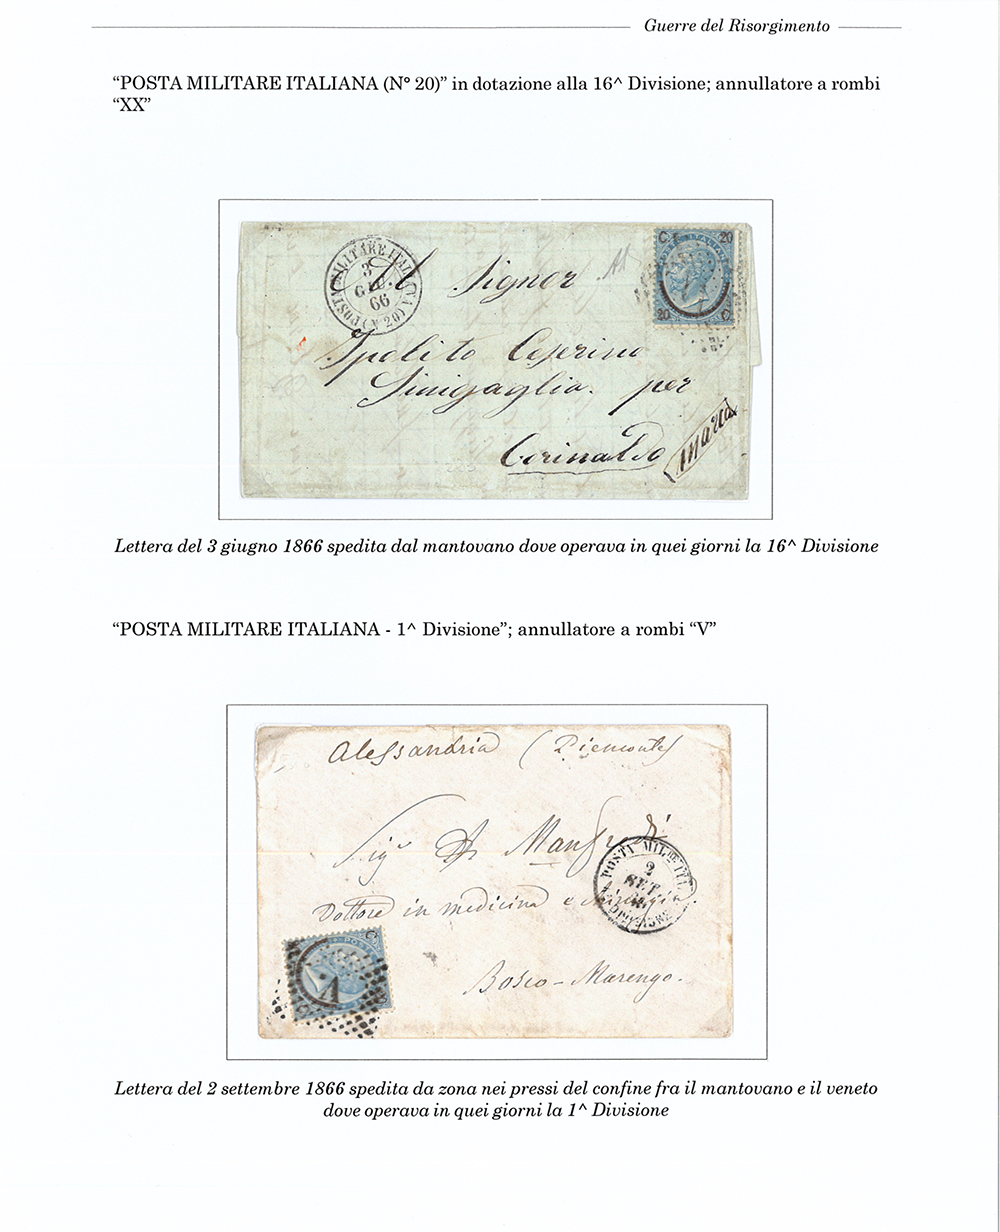 Guerre del Risorgimento
“POSTA MILITARE ITALIANA (N° 20)” in dotazione alla 16^ Divisione; annullatore a rombi
“XX”
POSTA MILITARE ITALIANA
(N 20)
3
GIU.
66
C 20
POSTE ITALIANE
20 C
Il Signor
Ipolito Ceserino
Sinigaglia. per
Corinaldo
Marca
Lettera del 3 giugno 1866 spedita dal mantovano dove operava in quei giorni la 16^ Divisione
“POSTA MILITARE ITALIANA - 1^ Divisione”; annullatore a rombi “V”
Alessandria (Piemonte)
Sigr Manfredi
POSTA MILRE ITL.
2
SET.
66
DIVISIONE
Dottore in medicina e chirurgia
POSTE
C
V
Bosco - Marengo.
Lettera del 2 settembre 1866 spedita da zona nei pressi del confine fra il mantovano e il veneto
dove operava in quei giorni la 1^ Divisione